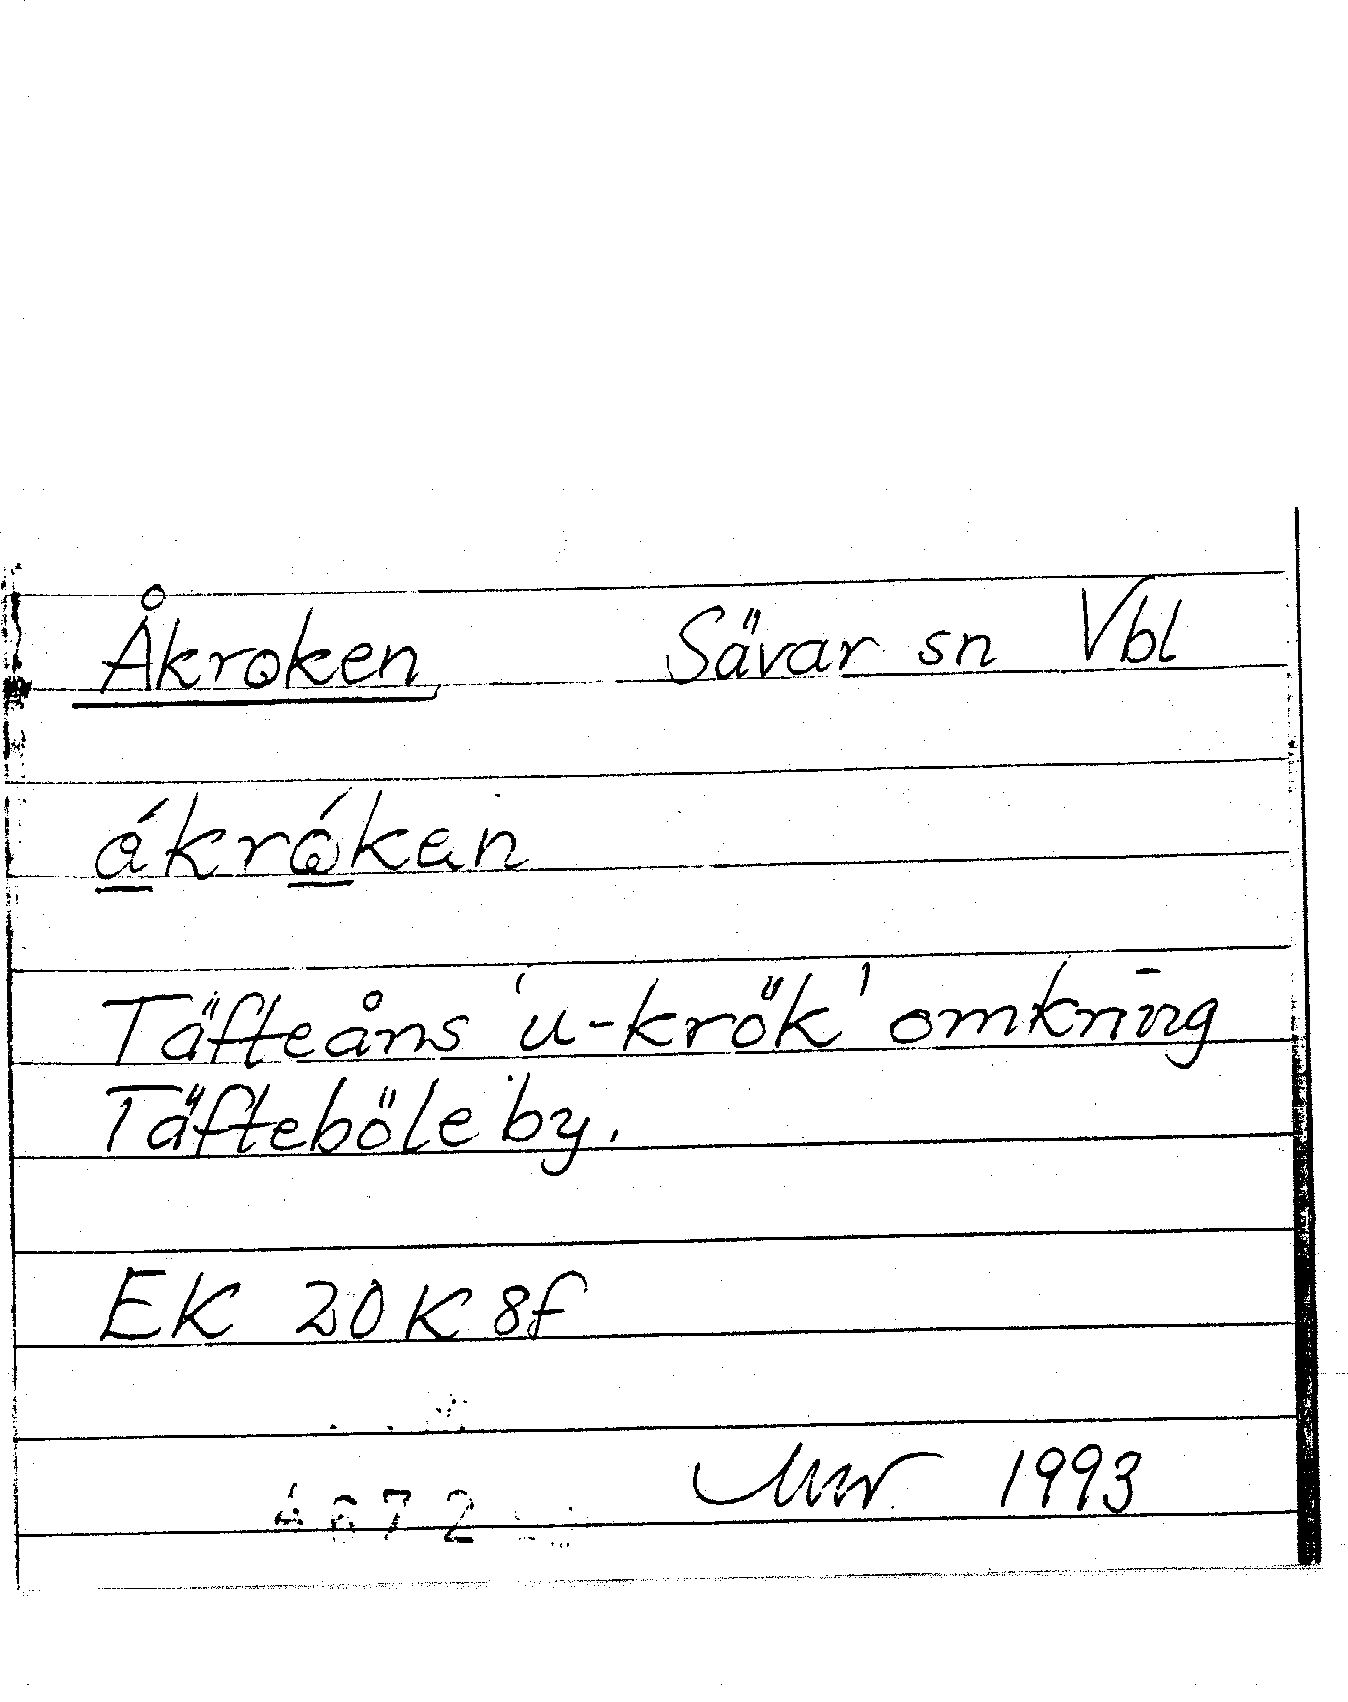 Åkroken Sävar sn Vbl
ákrókan
Täfteåns 'u-krök' omkring
Täfteböle by.
EK 20K 8f
1993